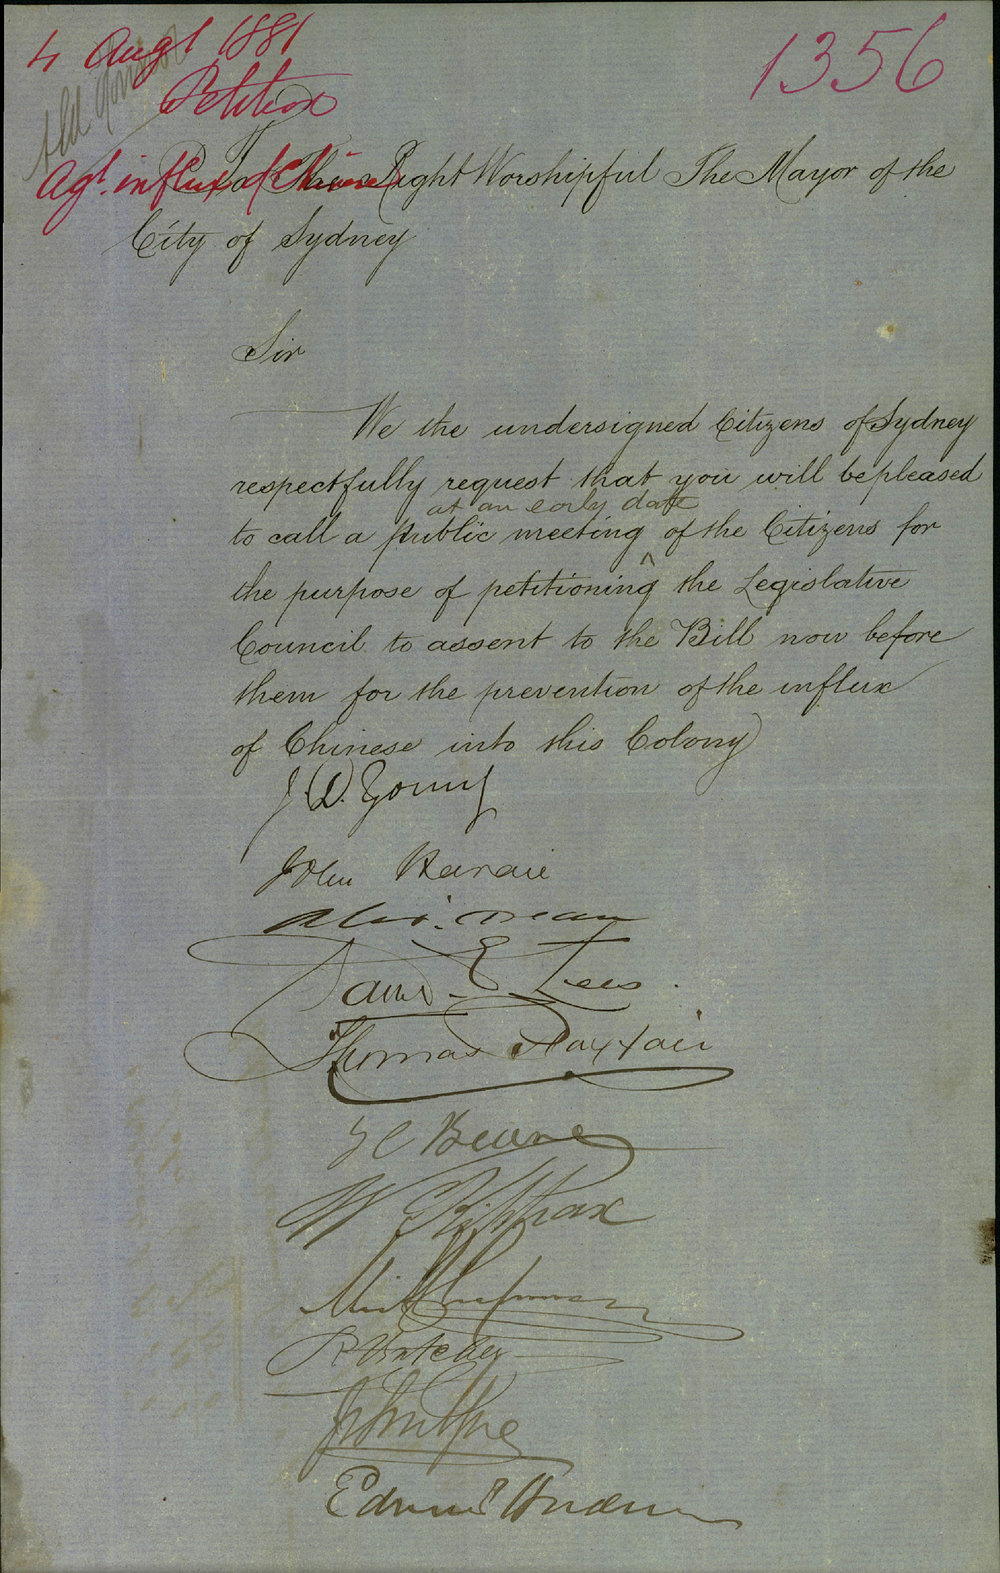 4 Augt 1881
1356
Petition
Agt. influx of Chinese
To The Right Worshipful The Mayor of the
City of Sydney
Sir
We the undersigned Citizens of Sydney
respectfully request that you will be pleased
at an early date
to call a public meeting ^ of the Citizens for
the purpose of petitioning the Legislative
Council to assent to the Bill now before
them for the prevention of the influx
of Chinese into this Colony
J. D. Young
John Hardie
Alex. Dean
E Lees
Thomas Playfair
Beare
W Kippax
Chapman
R Butcher
Edmund